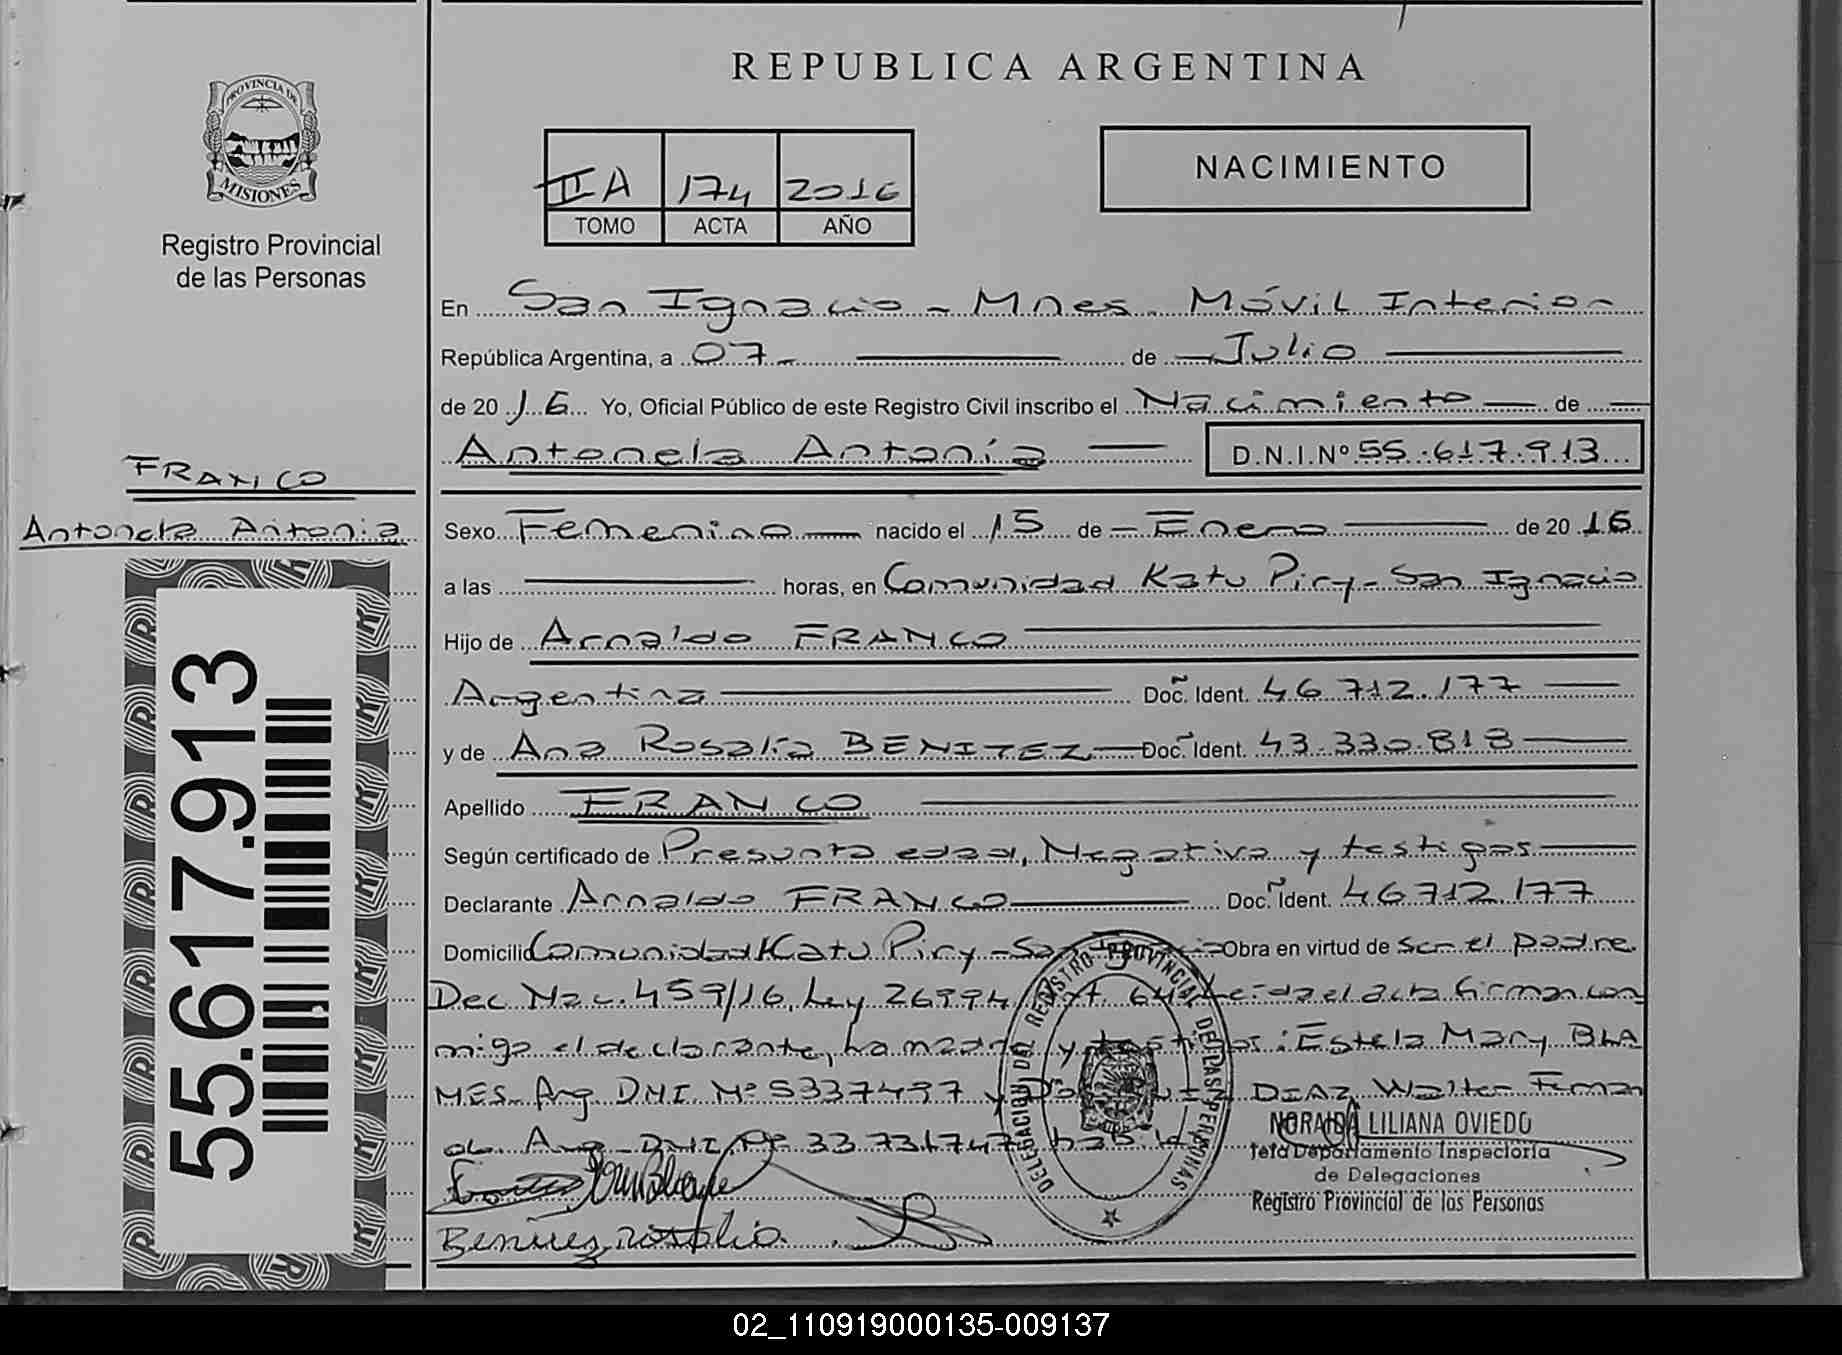 REPUBLICA ARGENTINA
PROVINCIA DE
MISIONES
Registro Provincial
de las Personas
IIA 174 2016
TOMO ACTA AÑO
NACIMIENTO
En San Ignacio - Mnes. Móvil Interior
República Argentina, a 07 de Julio
de 2016 Yo, Oficial Público de este Registro Civil inscribo el Nacimiento de
Antonela Antonia D.N.I.Nº 55.617.913
FRANCO
Antonela Antonia
Sexo Femenino nacido el 15 de Enero de 2016
a las horas, en Comunidad Katu Piry - San Ignacio
Hijo de Arnaldo FRANCO
Argentina Doc. Ident. 46.712.177
y de Ana Rosalia BENITEZ Doc. Ident. 43.330.818
Apellido FRANCO
Según certificado de Presunta edad, Negativa y testigos
Declarante Arnaldo FRANCO Doc. Ident. 46.712.177
Domicilio Comunidad Katu Piry - San Obra en virtud de ser el padre
Dec Nac. 459/16, Ley 26994 Art. 64, leida el acta firman con
migo el declarante, la madre y testigos: Estela Mary BLA
MES Arg DNI Nº 5337497 y DIAZ Walter Fernan
do Arg DNI Nº 33731747
Benitez rosalia
DELEGACION DEL REGISTRO PROVINCIAL DE LAS PERSONAS
NORAIDA LILIANA OVIEDO
Jefa Departamento Inspectoria
de Delegaciones
Registro Provincial de las Personas
55.617.913
02_110919000135-009137